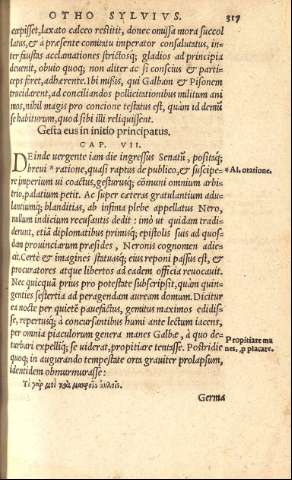 OTHO SYLVIVS. 317
cepisset, laxato calceo restitit, donec omissa mora succol
latus, & a præsente comitatu imperator consalutatus, in-
ter faustas acclamationes strictosq; gladios ad principia
deuenit, obuio quoq; non aliter ac si conscius & parti-
ceps foret, adhærente. Ibi missis, qui Galbam & Pisonem
trucidarent, ad conciliandos pollicitationibus militum ani
mos, nihil magis pro concione testatus est, quàm id demũ
se habiturum, quod sibi illi reliquissent.
Gesta eius in initio principatus.
CAP. VII.
DEinde uergente iam die ingressus Senatũ, positaq;
breui * ratione, quasi raptus de publico, & suscipe-
re imperium ui coactus, gesturusq; cõmuni omnium arbi-
trio, palatium petit. Ac super cæteras gratulantium adu-
lantiumq; blanditias, ab infima plebe appellatus Nero,
nullum indicium recusantis dedit: imò ut quidam tradi-
derunt, etiã diplomatibus primisq; epistolis suis ad quos-
dam prouinciarum præsides, Neronis cognomen adie-
cit. Certè & imagines statuasq; eius reponi passus est, &
procuratores atque libertos ad eadem officia reuocauit.
Nec quicquã prius pro potestate subscripsit, quàm quin-
genties sestertiũ ad peragendam auream domum. Dicitur
ea nocte per quietẽ pauefactus, gemitus maximos edidis-
se, repertusq; à concursantibus humi ante lectum iacens,
per omnia piaculorum genera manes Galbæ, à quo de-
turbari expelliq; se uiderat, propitiare tentasse. Postridie
quoq; in augurando tempestate orta grauiter prolapsum,
identidem obmurmurasse:
Τί γάρ μοι καὶ μακροῖς αὐλοῖς.
Germa
*Al. oratione.
Propitiare ma
nes, p placare.